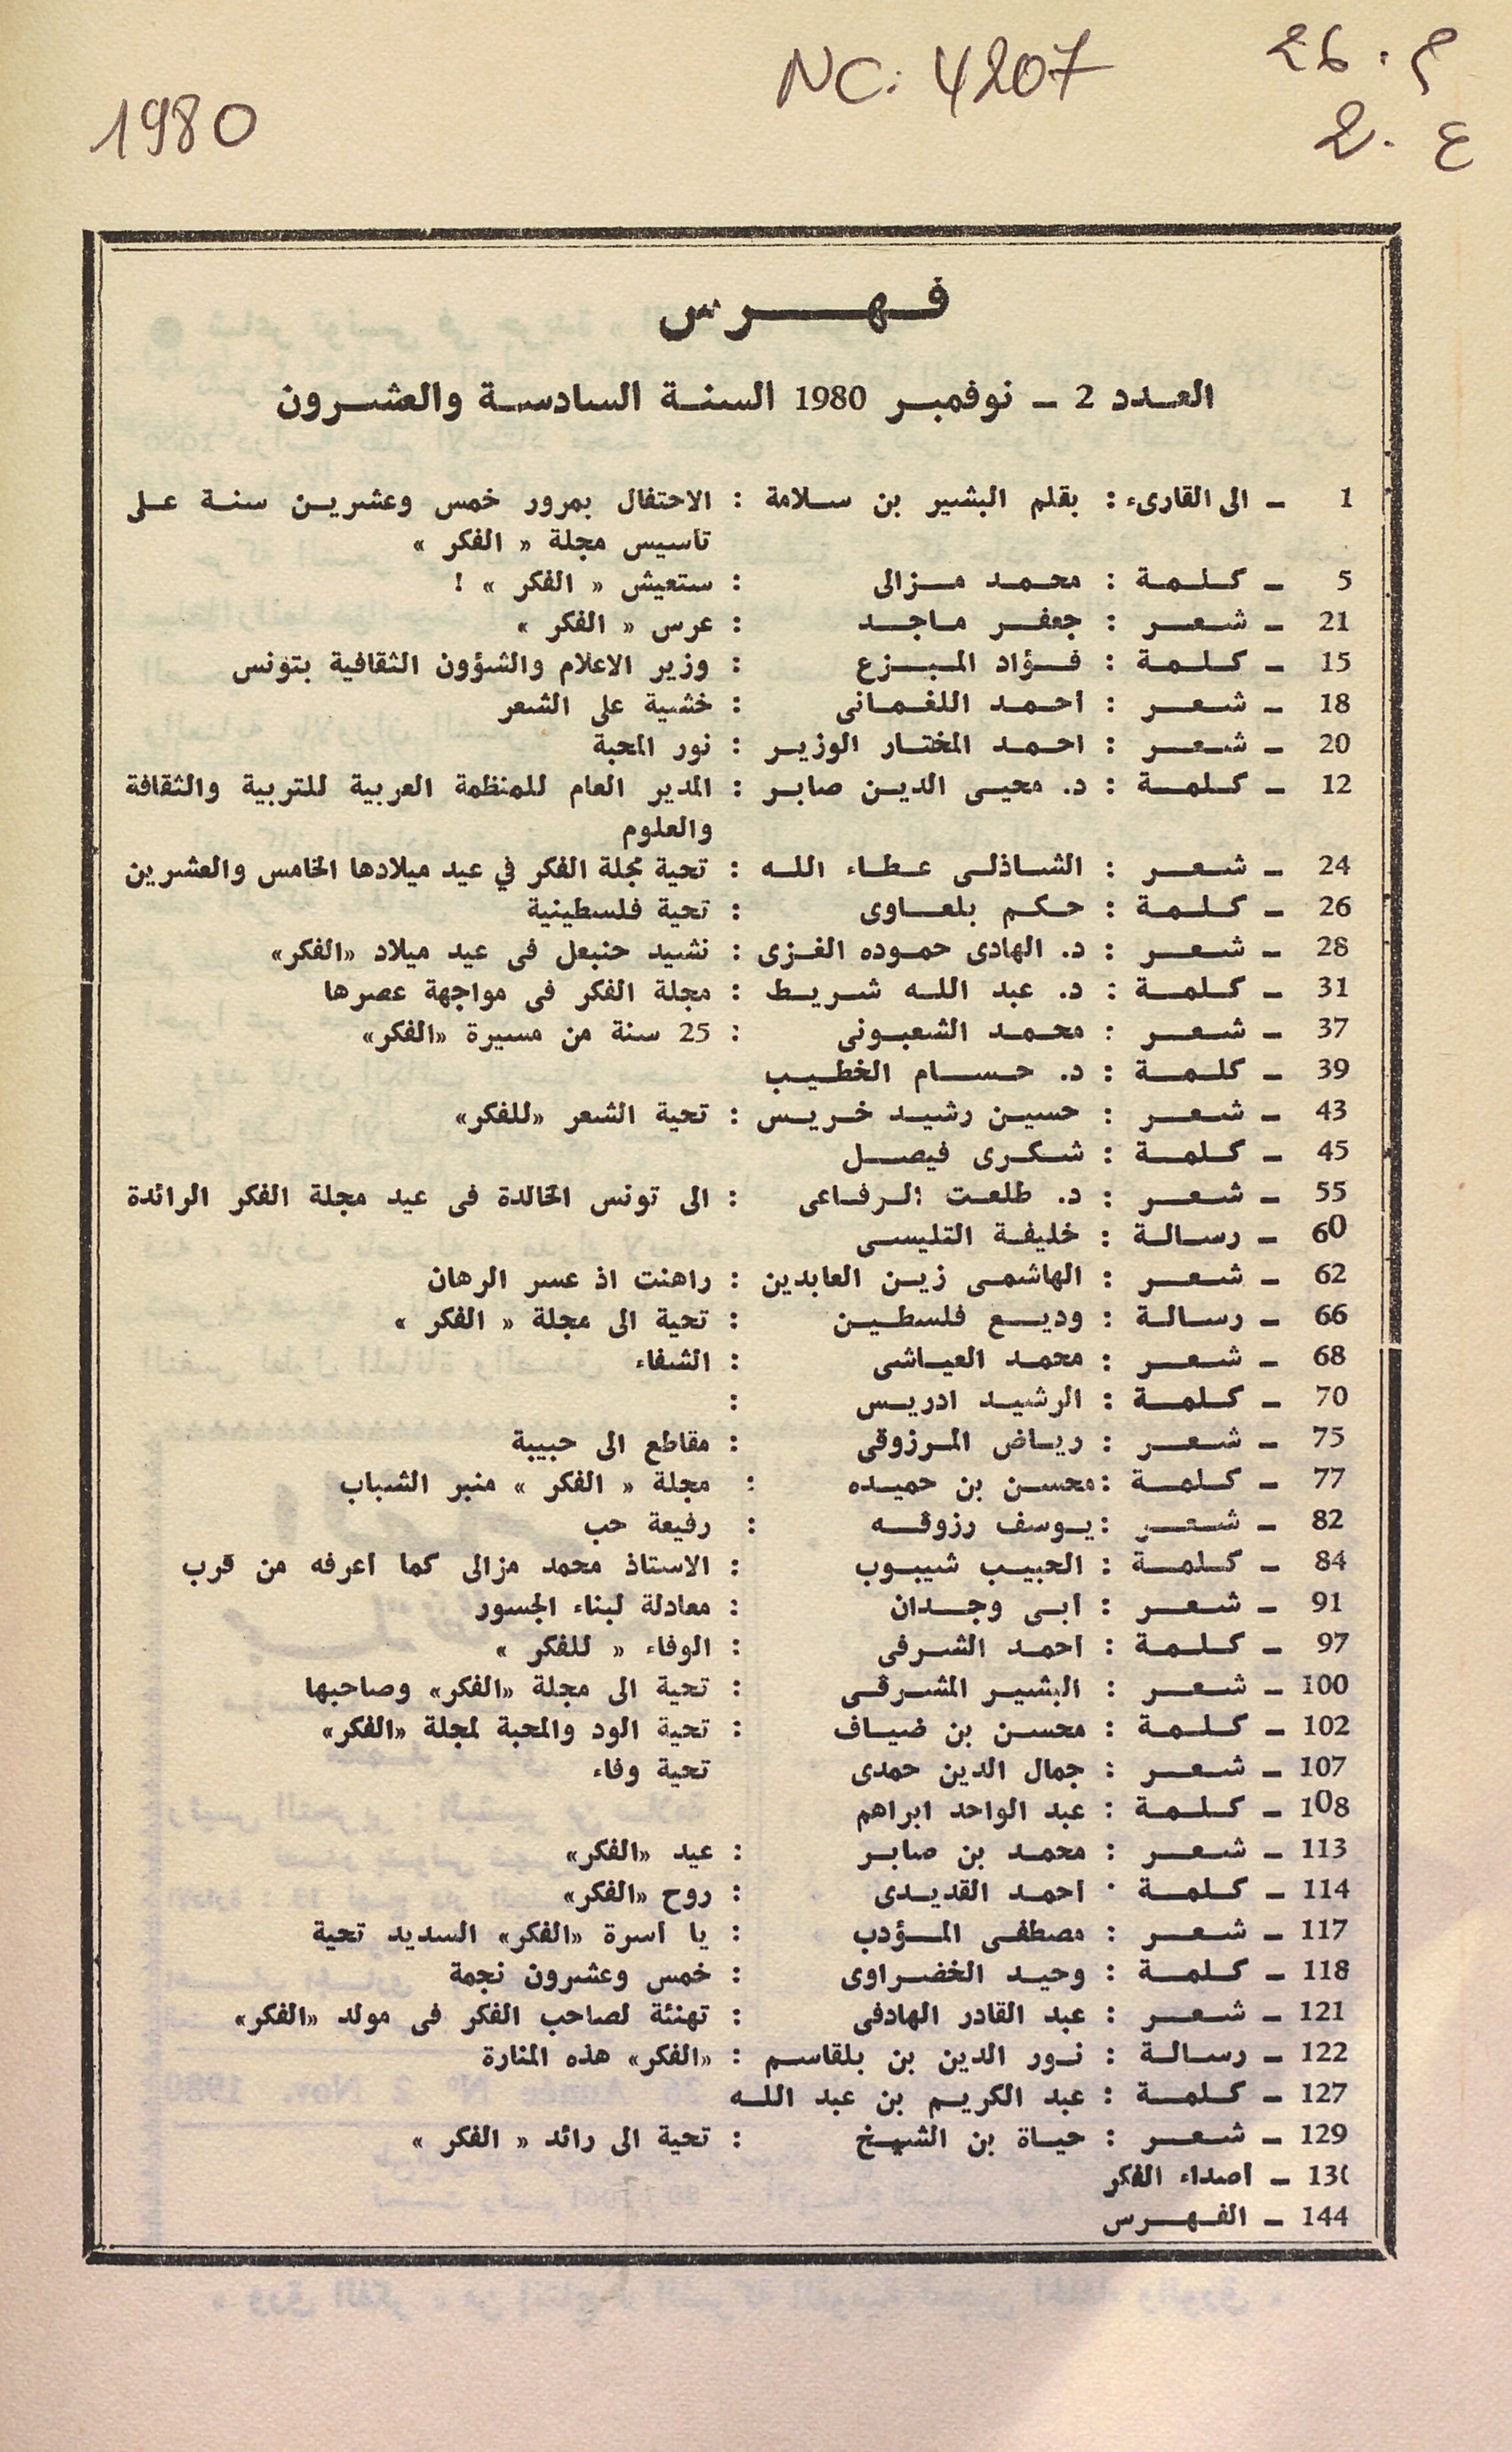 NC: 4207
م . 26
ع . 2
1980
فهرس
العدد 2 ـ نوفمبر 1980 السنة السادسة والعشرون
1 ـ الى القارىء : بقلم البشير بن سلامة : الاحتفال بمرور خمس وعشرين سنة على
تأسيس مجلة « الفكر »
5 ـ كلمة : محمد مزالى : ستعيش « الفكر » !
21 ـ شعر : جعفر ماجد : عرس « الفكر »
15 ـ كلمة : فؤاد المبزع : وزير الاعلام والشؤون الثقافية بتونس
18 ـ شعر : أحمد اللغمانى : خشية على الشعر
20 ـ شعر : احمد المختار الوزير : نور المحبة
12 ـ كلمة : د. محيى الدين صابر : المدير العام للمنظمة العربية للتربية والثقافة
والعلوم
24 ـ شعر : الشاذلى عطاء الله : تحية مجلة الفكر في عيد ميلادها الخامس والعشرين
26 ـ كلمة : حكم بلعاوى : تحية فلسطينية
28 ـ شعر : د. الهادى حموده الغزى : نشيد حنبعل فى عيد ميلاد «الفكر»
31 ـ كلمة : د. عبد الله شريط : مجلة الفكر فى مواجهة عصرها
37 ـ شعر : محمد الشعبونى : 25 سنة من مسيرة «الفكر»
39 ـ كلمة : د. حسام الخطيب
43 ـ شعر : حسين رشيد خريس : تحية الشعر «للفكر»
45 ـ كلمة : شكرى فيصل
55 ـ شعر : د. طلعت الرفاعى : الى تونس الخالدة فى عيد مجلة الفكر الرائدة
60 ـ رسالة : خليفة التليسى
62 ـ شعر : الهاشمى زين العابدين : راهنت اذ عسر الرهان
66 ـ رسالة : وديع فلسطين : تحية الى مجلة « الفكر »
68 ـ شعر : محمد العياشى : الشفاء
70 ـ كلمة : الرشيد ادريس :
75 ـ شعر : رياض المرزوقى : مقاطع الى حبيبة
77 ـ كلمة :محسن بن حميده : مجلة « الفكر » منبر الشباب
82 ـ شعر :يوسف رزوقه : رفيعة حب
84 ـ كلمة : الحبيب شيبوب : الاستاذ محمد مزالى كما أعرفه من قرب
91 ـ شعر : أبى وجدان : معادلة لبناء الجسور
97 ـ كلمة : أحمد الشرفى : الوفاء « للفكر »
100 ـ شعر : البشير المشرقى : تحية الى مجلة «الفكر» وصاحبها
102 ـ كلمة : محسن بن ضياف : تحية الود والمحبة لمجلة «الفكر»
107 ـ شعر : جمال الدين حمدى تحية وفاء
108 ـ كلمة : عبد الواحد ابراهم
113 ـ شعر : محمد بن صابر : عيد «الفكر»
114 ـ كلمة · أحمد القديدى : روح «الفكر»
117 ـ شعر : مصطفى المؤدب : يا أسرة «الفكر» السديد تحية
118 ـ كلمة : وحيد الخضراوى : خمس وعشرون نجمة
121 ـ شعر : عبد القادر الهادفى : تهنئة لصاحب الفكر فى مولد «الفكر»
122 ـ رسالة : نور الدين بن بلقاسم : «الفكر» هذه المنارة
127 ـ كلمة : عبد الكريم بن عبد الله
129 ـ شعر : حياة بن الشيخ : تحية الى رائد « الفكر »
130 ـ أصداء الفكر
144 ـ الفهرس